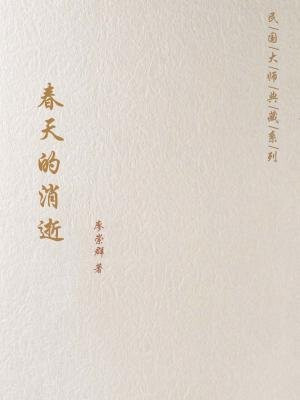 民|国|大|师|典|藏|系|列
春天的消逝
廖崇群 著